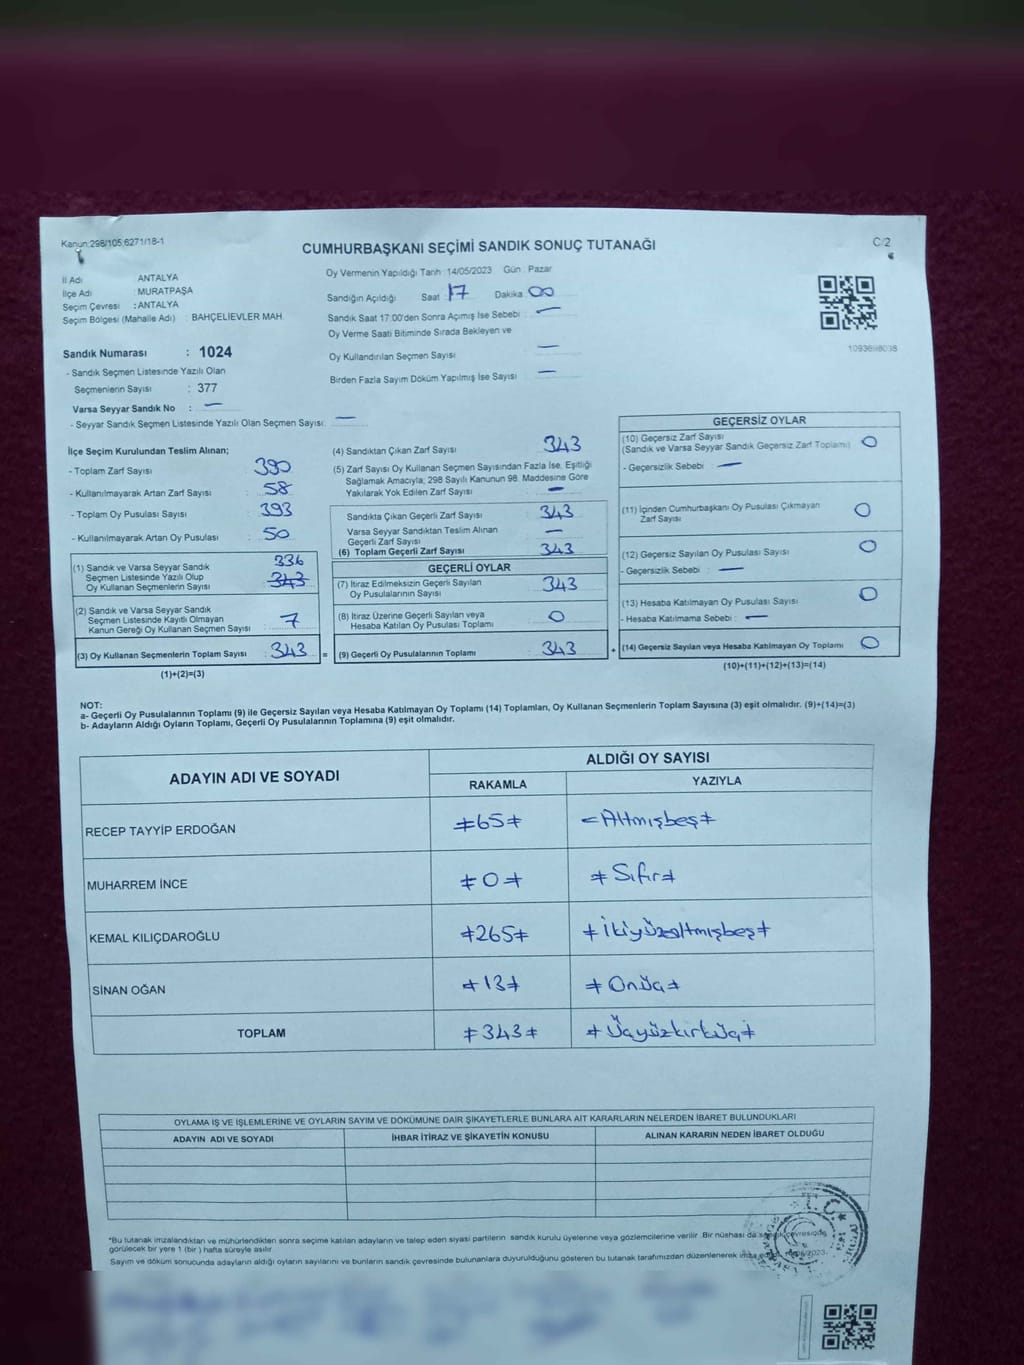 Kanun:298/105,6271/18-1
CUMHURBAŞKANI SEÇİMİ SANDIK SONUÇ TUTANAĞI
C/2
İl Adı ANTALYA
İlçe Adı : MURATPAŞA
Seçim Çevresi : ANTALYA
Seçim Bölgesi (Mahalle Adı) : BAHÇELİEVLER MAH.
Sandık Numarası : 1024
- Sandık Seçmen Listesinde Yazılı Olan
Seçmenlerin Sayısı : 377
Varsa Seyyar Sandık No : —
- Seyyar Sandık Seçmen Listesinde Yazılı Olan Seçmen Sayısı: —
Oy Vermenin Yapıldığı Tarih : 14/05/2023 Gün : Pazar
Sandığın Açıldığı Saat : 17 Dakika : 00
Sandık Saat 17:00'den Sonra Açımış İse Sebebi : —
Oy Verme Saati Bitiminde Sırada Bekleyen ve
Oy Kullandırılan Seçmen Sayısı —
Birden Fazla Sayım Döküm Yapılmış İse Sayısı —
1093698038
İlçe Seçim Kurulundan Teslim Alınan;
- Toplam Zarf Sayısı 390
- Kullanılmayarak Artan Zarf Sayısı 58
- Toplam Oy Pusulası Sayısı 393
- Kullanılmayarak Artan Oy Pusulası 50
(1) Sandık ve Varsa Seyyar Sandık 336
Seçmen Listesinde Yazılı Olup 343
Oy Kullanan Seçmenlerin Sayısı
(2) Sandık ve Varsa Seyyar Sandık
Seçmen Listesinde Kayıtlı Olmayan 7
Kanun Gereği Oy Kullanan Seçmen Sayısı
(3) Oy Kullanan Seçmenlerin Toplam Sayısı 343 =
(1)+(2)=(3)
(4) Sandıktan Çıkan Zarf Sayısı 343
(5) Zarf Sayısı Oy Kullanan Seçmen Sayısından Fazla İse, Eşitliği
Sağlamak Amacıyla; 298 Sayılı Kanunun 98. Maddesine Göre
Yakılarak Yok Edilen Zarf Sayısı —
Sandıkta Çıkan Geçerli Zarf Sayısı 343
Varsa Seyyar Sandıktan Teslim Alınan
Geçerli Zarf Sayısı —
(6) Toplam Geçerli Zarf Sayısı 343
GEÇERLİ OYLAR
(7) İtiraz Edilmeksizin Geçerli Sayılan 343
Oy Pusulalarının Sayısı
(8) İtiraz Üzerine Geçerli Sayılan veya 0
Hesaba Katılan Oy Pusulası Toplamı
(9) Geçerli Oy Pusulalarının Toplamı 343 +
GEÇERSİZ OYLAR
(10) Geçersiz Zarf Sayısı 0
(Sandık ve Varsa Seyyar Sandık Geçersiz Zarf Toplamı)
- Geçersizlik Sebebi : —
(11) İçinden Cumhurbaşkanı Oy Pusulası Çıkmayan 0
Zarf Sayısı
(12) Geçersiz Sayılan Oy Pusulası Sayısı 0
- Geçersizlik Sebebi : —
(13) Hesaba Katılmayan Oy Pusulası Sayısı 0
- Hesaba Katılmama Sebebi : —
(14) Geçersiz Sayılan veya Hesaba Katılmayan Oy Toplamı 0
(10)+(11)+(12)+(13)=(14)
NOT:
a- Geçerli Oy Pusulalarının Toplamı (9) ile Geçersiz Sayılan veya Hesaba Katılmayan Oy Toplamı (14) Toplamları, Oy Kullanan Seçmenlerin Toplam Sayısına (3) eşit olmalıdır. (9)+(14)=(3)
b- Adayların Aldığı Oyların Toplamı, Geçerli Oy Pusulalarının Toplamına (9) eşit olmalıdır.
ADAYIN ADI VE SOYADI ALDIĞI OY SAYISI
RAKAMLA YAZIYLA
RECEP TAYYİP ERDOĞAN ≠65≠ =Altmışbeş≠
MUHARREM İNCE ≠0≠ ≠Sıfır≠
KEMAL KILIÇDAROĞLU ≠265≠ ≠İkiyüzaltmışbeş≠
SİNAN OĞAN ≠13≠ ≠Onüç≠
TOPLAM ≠343≠ ≠Üçyüzkırküç≠
OYLAMA İŞ VE İŞLEMLERİNE VE OYLARIN SAYIM VE DÖKÜMÜNE DAİR ŞİKAYETLERLE BUNLARA AİT KARARLARIN NELERDEN İBARET BULUNDUKLARI
ADAYIN ADI VE SOYADI İHBAR İTİRAZ VE ŞİKAYETİN KONUSU ALINAN KARARIN NEDEN İBARET OLDUĞU
*Bu tutanak imzalandıktan ve mühürlendikten sonra seçime katılan adayların ve talep eden siyasi partilerin sandık kurulu üyelerine veya gözlemcilerine verilir. Bir nüshası da sandık çevresinde
görülecek bir yere 1 (bir) hafta süreyle asılır.
Sayım ve döküm sonucunda adayların aldığı oyların sayılarını ve bunların sandık çevresinde bulunanlara duyurulduğunu gösteren bu tutanak tarafımızdan düzenlenerek
T.C.